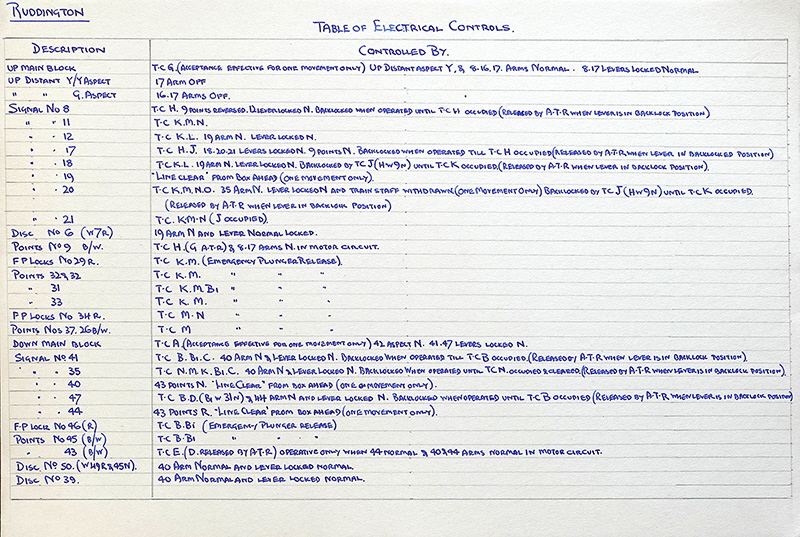 RUDDINGTON
TABLE OF ELECTRICAL CONTROLS.
DESCRIPTION CONTROLLED BY.
UP MAIN BLOCK T·C G. (ACCEPTANCE EFFECTIVE FOR ONE MOVEMENT ONLY) UP DISTANT ASPECT Y, & 8·16.17. ARMS NORMAL. 8.17 LEVERS LOCKED NORMAL
UP DISTANT Y/Y ASPECT 17 ARM OFF
" " G. ASPECT 16·17 ARMS OFF.
SIGNAL NO 8 T·C H. 9 POINTS REVERSED. 12 LEVER LOCKED N. BACKLOCKED WHEN OPERATED UNTIL T·C H OCCUPIED (RELEASED BY A·T·R WHEN LEVER IS IN BACKLOCK POSITION)
" " 11 T·C K.M.N.
" " 12 T·C K.L. 19 ARM N. LEVER LOCKED N.
" " 17 T·C H.J. 18·20·21 LEVERS LOCKED N. 9 POINTS N. BACKLOCKED WHEN OPERATED TILL T·C H OCCUPIED (RELEASED BY A·T·R WHEN LEVER IN BACKLOCKED POSITION)
" " 18 T·C K.L. 19 ARM N. LEVER LOCKED N. BACKLOCKED BY TC J (HW 9N) UNTIL T·C K OCCUPIED. (RELEASED BY A·T·R WHEN LEVER IS IN BACKLOCK POSITION).
" " 19 "LINE CLEAR" FROM BOX AHEAD (ONE MOVEMENT ONLY).
" " 20 T·C K.M.N.O. 35 ARM N. LEVER LOCKED N AND TRAIN STAFF WITHDRAWN (ONE MOVEMENT ONLY) BACKLOCKED BY TC J (HW 9N) UNTIL T·C K OCCUPIED.
(RELEASED BY A·T·R WHEN LEVER IN BACKLOCK POSITION)
" " 21 T·C. K·M·N (J OCCUPIED).
DISC NO 6 (W7R) 19 ARM N AND LEVER NORMAL LOCKED.
POINTS NO 9 B/W. T·C H. (G A·T·R) & 8·17 ARMS N. IN MOTOR CIRCUIT.
F P LOCKS NO 29 R. T·C K.M. (EMERGENCY PLUNGER RELEASE).
POINTS 32 & 32 T·C K.M. " " "
" 31 T·C K.M.B1 " " "
" 33 T·C K.M. " " "
F P LOCKS NO 34 R. T·C M·N " " "
POINTS NOS 37. 26 B/W. T·C M " " "
DOWN MAIN BLOCK T·C A. (ACCEPTANCE EFFECTIVE FOR ONE MOVEMENT ONLY) 42 ASPECT N. 41.47 LEVERS LOCKED N.
SIGNAL NO 41 T·C B. B1. C. 40 ARM N & LEVER LOCKED N. BACKLOCKED WHEN OPERATED TILL T·C B OCCUPIED. (RELEASED BY A·T·R WHEN LEVER IS IN BACKLOCK POSITION).
" " 35 T·C N.M.K.B1.C. 40 ARM N & LEVER LOCKED N. BACKLOCKED WHEN OPERATED UNTIL TC N. OCCUPIED & CLEARED. (RELEASED BY A·T·R WHEN LEVER IS IN BACKLOCK POSITION)
" " 40 43 POINTS N. "LINE CLEAR" FROM BOX AHEAD (ONE MOVEMENT ONLY).
" " 47 T·C B.D. (B1 W 31N) & 44 ARM N AND LEVER LOCKED N. BACKLOCKED WHEN OPERATED UNTIL T·C B OCCUPIED (RELEASED BY A·T·R WHEN LEVER IS IN BACKLOCK POSITION)
" " 44 43 POINTS R. "LINE CLEAR" FROM BOX AHEAD (ONE MOVEMENT ONLY).
F·P LOCK NO 46 (R) T·C B.B1 (EMERGENCY PLUNGER RELEASE)
POINTS NO 45 (B/W) T·C B·B1 " " "
" 43 (B/W) T·C E. (D. RELEASED BY A·T·R) OPERATIVE ONLY WHEN 44 NORMAL & 40 & 44 ARMS NORMAL IN MOTOR CIRCUIT.
DISC NO 50. (W 49R & 45N). 40 ARM NORMAL AND LEVER LOCKED NORMAL.
DISC NO 39. 40 ARM NORMAL AND LEVER LOCKED NORMAL.